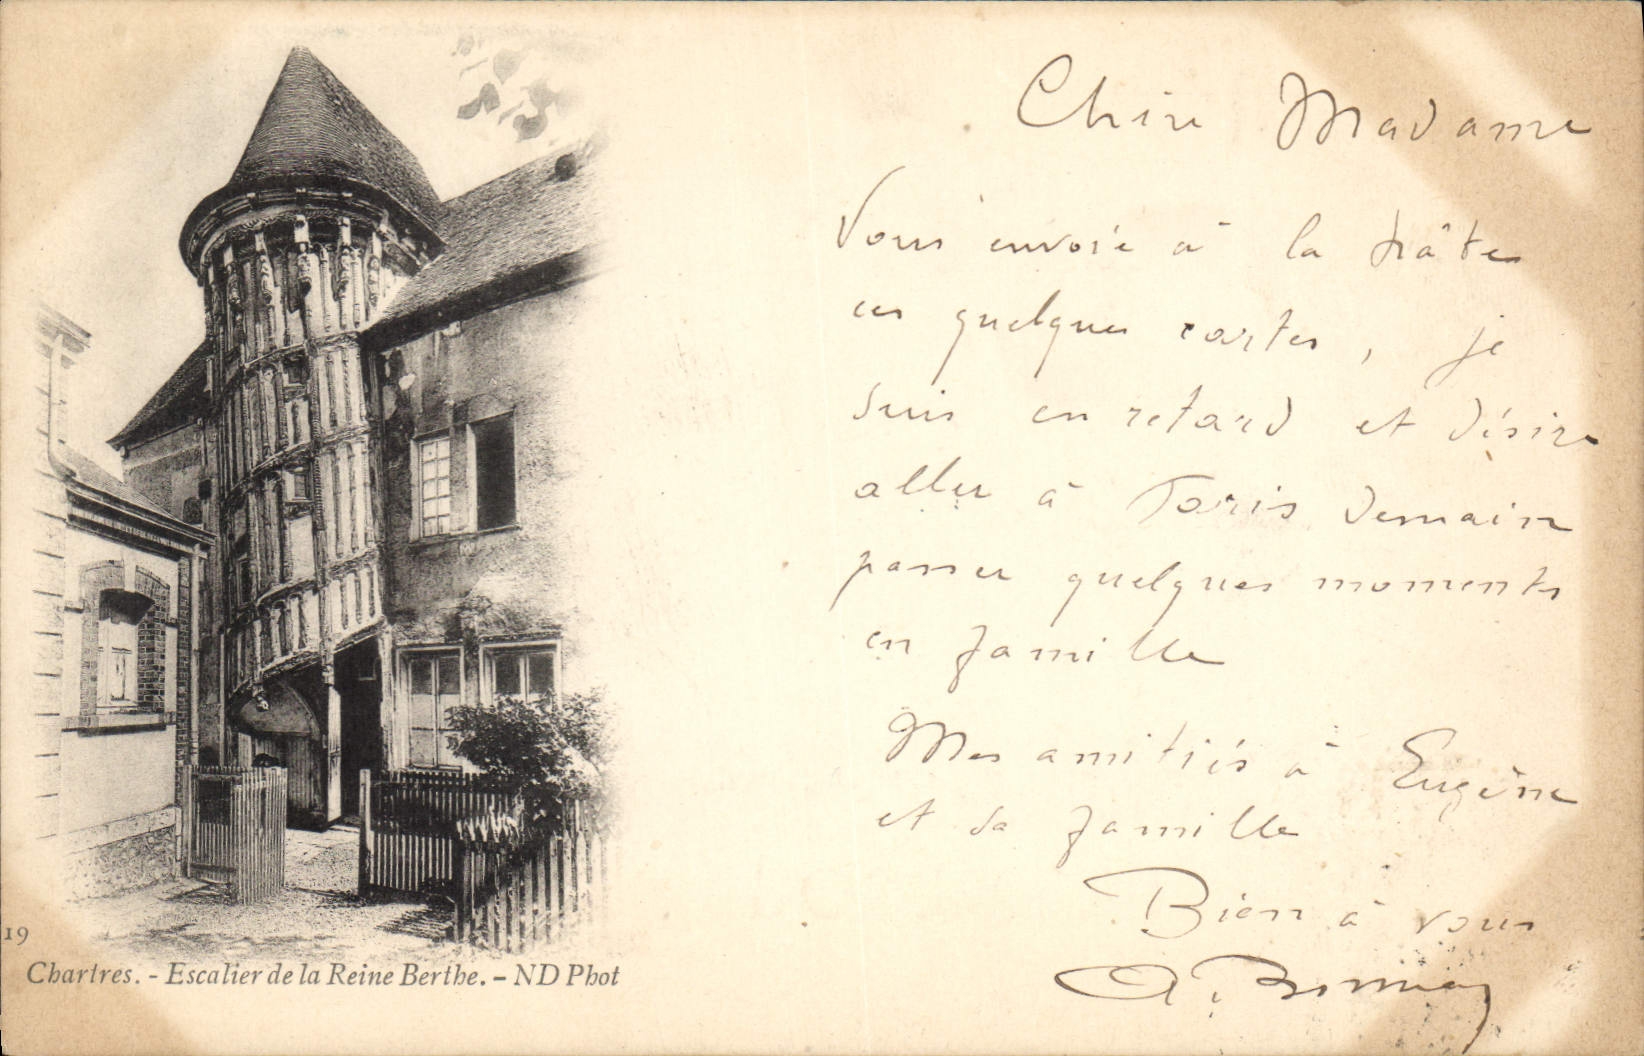 Chère Madame
Vous envoie à la hâte
ces quelques cartes, je
suis en retard et désire
aller à Paris demain
passer quelques moments
en famille
Mes amitiés à Eugène
et sa famille
Bien à vous
A.
19
Chartres. - Escalier de la Reine Berthe. - ND Phot